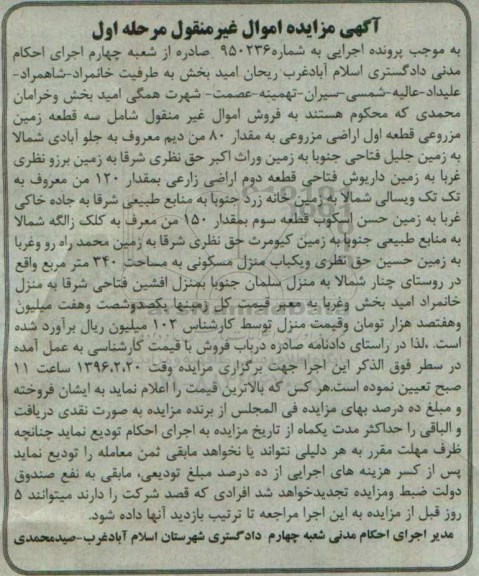 آگهی مزایده اموال غیرمنقول مرحله اول
به موجب پرونده اجرایی به شماره۹۵۰۲۳۶ صادره از شعبه چهارم اجرای احکام
مدنی دادگستری اسلام آبادغرب ریحان امید بخش به طرفیت خانمراد-شاهمراد-
علیداد-عالیه-شمسی-سیران-تهمینه-عصمت- شهرت همگی امید بخش وخرامان
محمدی که محکوم هستند به فروش اموال غیر منقول شامل سه قطعه زمین
مزروعی قطعه اول اراضی مزروعی به مقدار ۸۰ من دیم معروف به جلو آبادی شمالا
به زمین جلیل فتاحی جنوبا به زمین وراث اکبر حق نظری شرقا به زمین برزو نظری
غربا به زمین داریوش فتاحی قطعه دوم اراضی زارعی بمقدار ۱۲۰ من معروف به
تک تک ویسالی شمالا به زمین خانه زرد جنوبا به منابع طبیعی شرقا به جاده خاکی
غربا به زمین حسن اسکوب قطعه سوم بمقدار ۱۵۰ من معرف به کلک زالگه شمالا
به منابع طبیعی جنوبا به زمین کیومرث حق نظری شرقا به زمین محمد راه رو وغربا
به زمین حسین حق نظری ویکباب منزل مسکونی به مساحت ۳۴۰ متر مربع واقع
در روستای چنار شمالا به منزل سلمان جنوبا بمنزل افشین فتاحی شرقا به منزل
خانمراد امید بخش وغربا به معبر قیمت کل زمینها یکصدوشصت وهفت میلیون
وهفتصد هزار تومان وقیمت منزل توسط کارشناس ۱۰۲ میلیون ریال برآورد شده
است .لذا در راستای دادنامه صادره درباب فروش با قیمت کارشناسی به عمل آمده
در سطر فوق الذکر این اجرا جهت برگزاری مزایده وقت ۱۳۹۶.۲.۲۰ ساعت ۱۱
صبح تعیین نموده است.هر کس که بالاترین قیمت را اعلام نماید به ایشان فروخته
و مبلغ ده درصد بهای مزایده فی المجلس از برنده مزایده به صورت نقدی دریافت
و الباقی را حداکثر مدت یکماه از تاریخ مزایده به اجرای احکام تودیع نماید چنانچه
ظرف مهلت مقرر به هر دلیلی نتواند یا نخواهد مابقی ثمن معامله را تودیع نماید
پس از کسر هزینه های اجرایی از ده درصد مبلغ تودیعی، مابقی به نفع صندوق
دولت ضبط ومزایده تجدیدخواهد شد افرادی که قصد شرکت را دارند میتوانند ۵
روز قبل از مزایده به این اجرا مراجعه تا ترتیب بازدید آنها داده شود.
مدیر اجرای احکام مدنی شعبه چهارم دادگستری شهرستان اسلام آبادغرب-صیدمحمدی